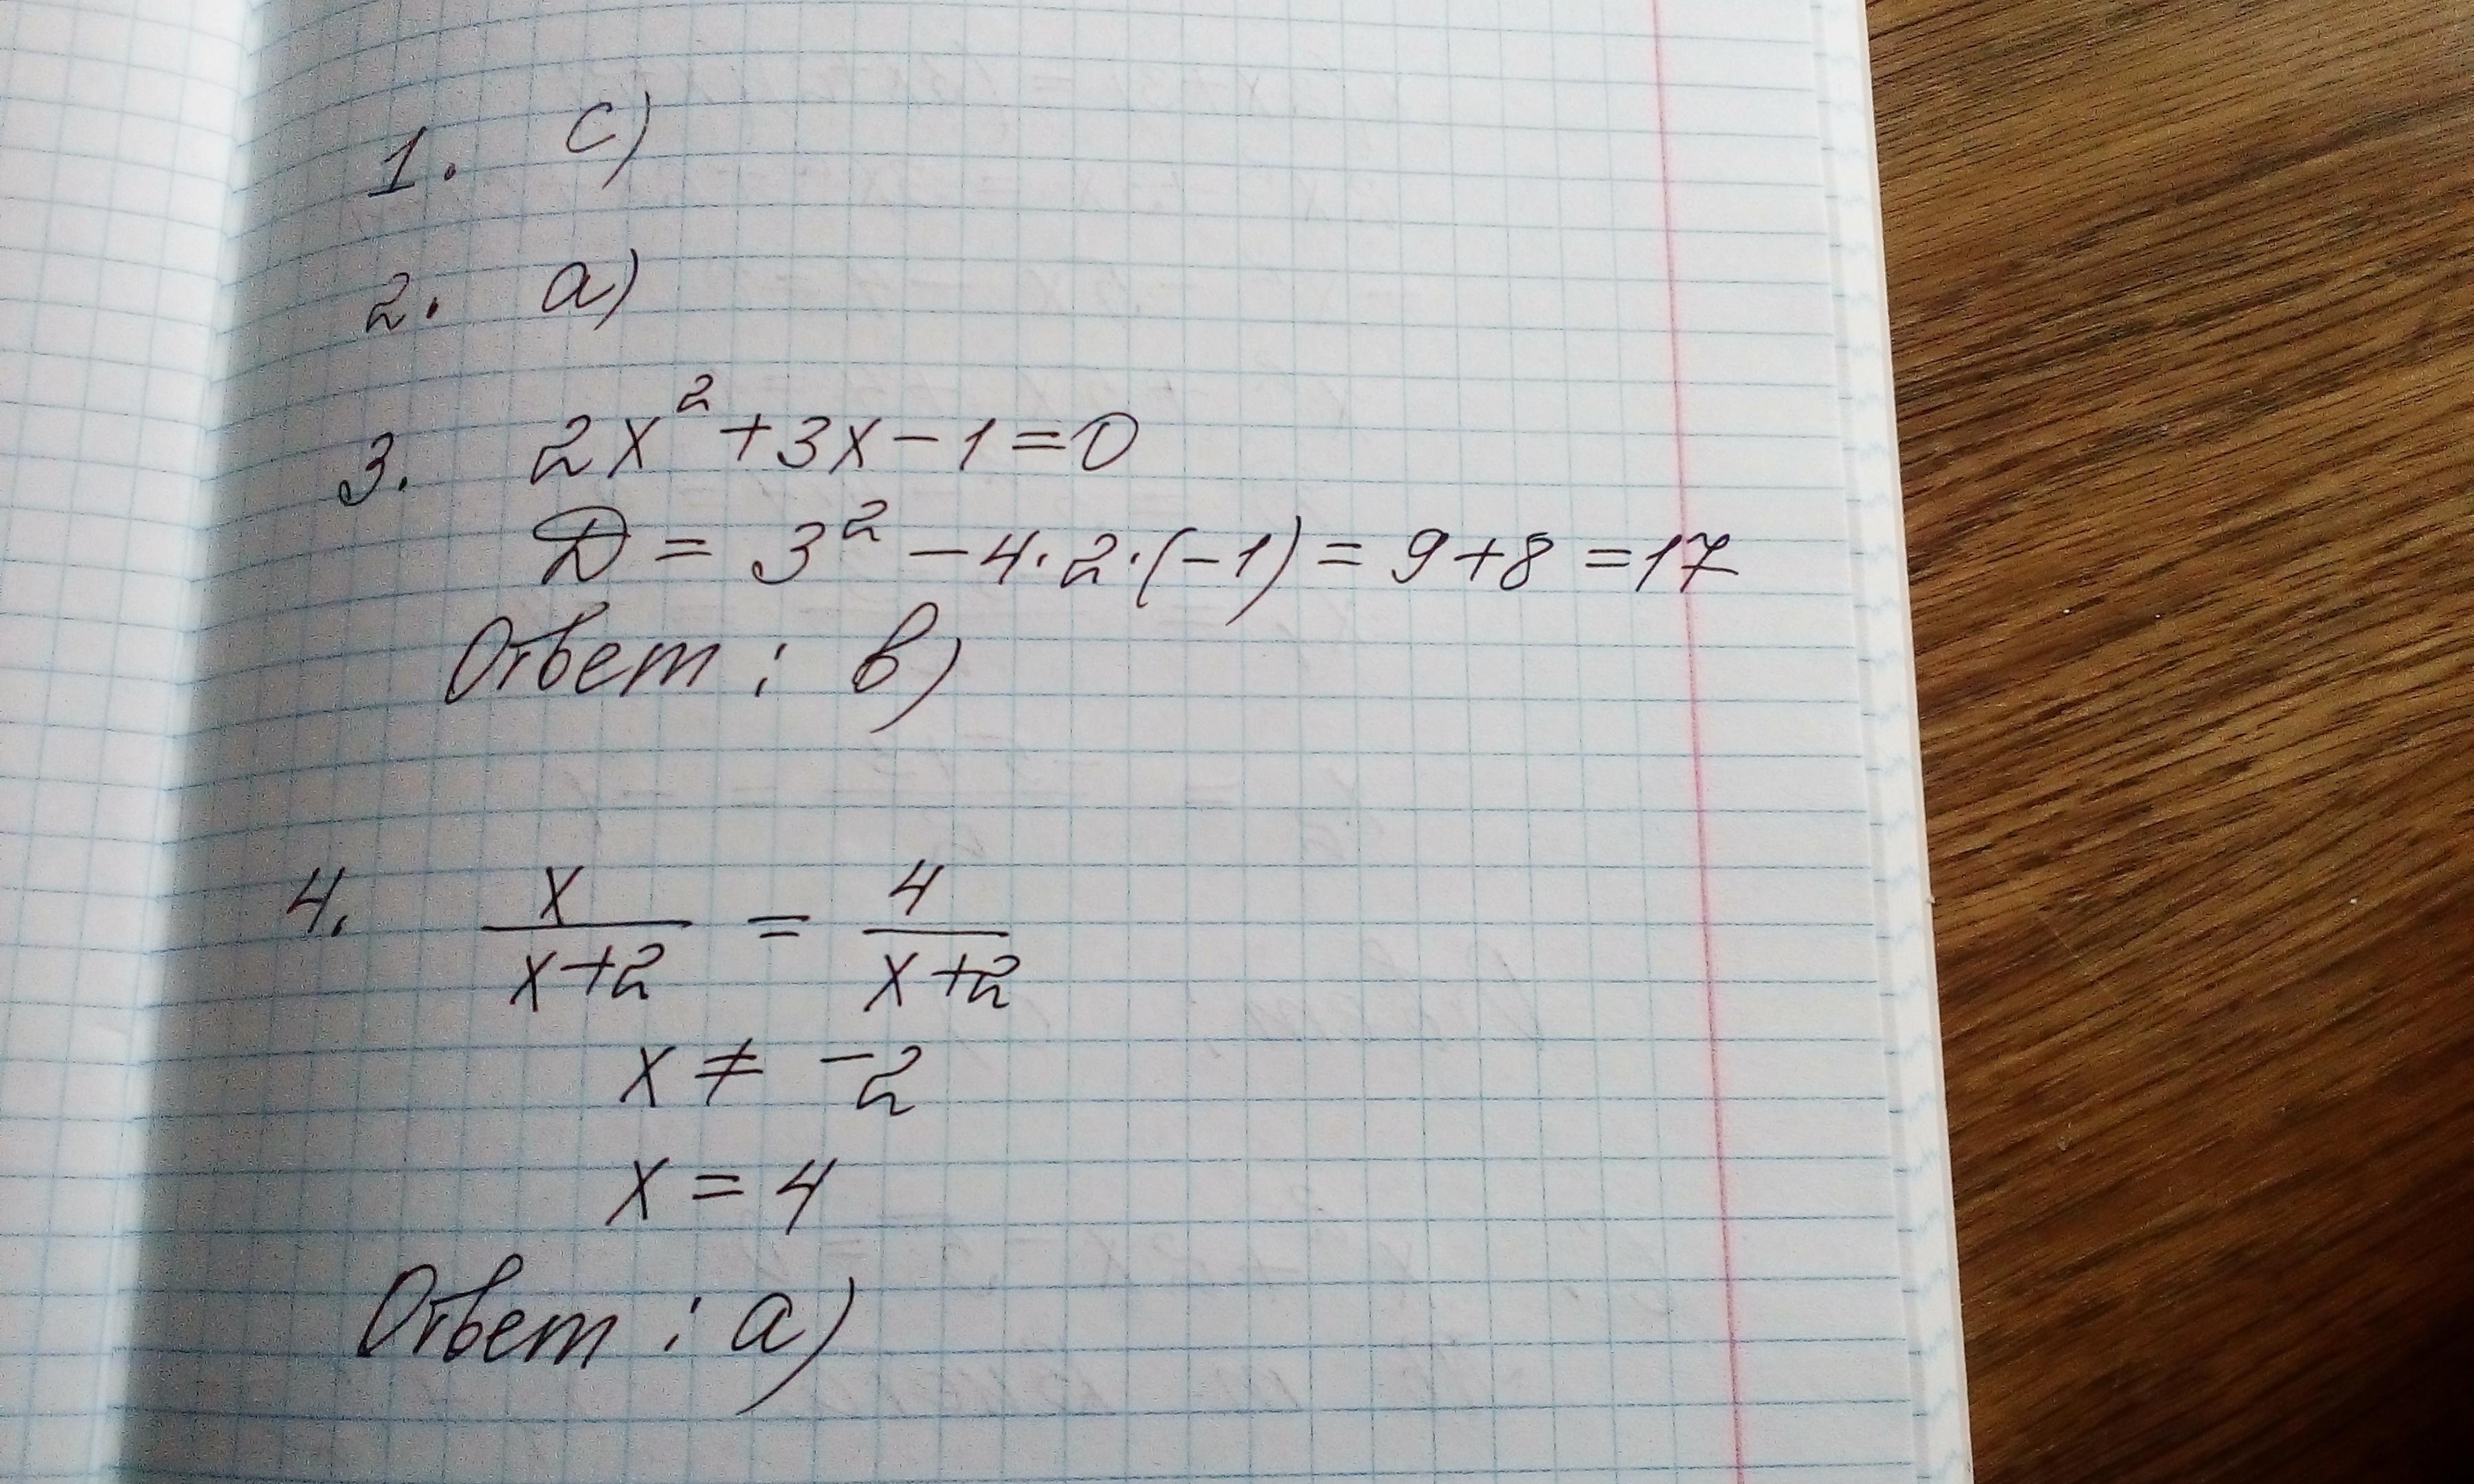 1. c)
2. a)
3. 2x² + 3x - 1 = 0
D = 3² - 4·2·(-1) = 9 + 8 = 17
Ответ: в)
4. x/(x+2) = 4/(x+2)
x ≠ -2
x = 4
Ответ: а)